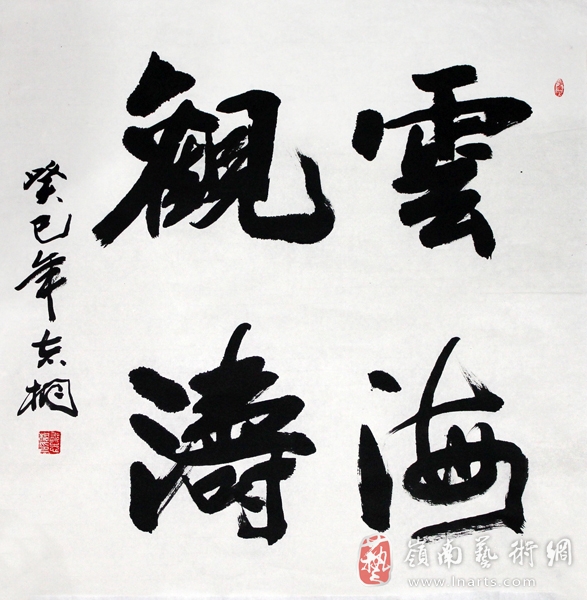 雲海
觀濤
癸巳年
嶺南藝術網
www.lnarts.com